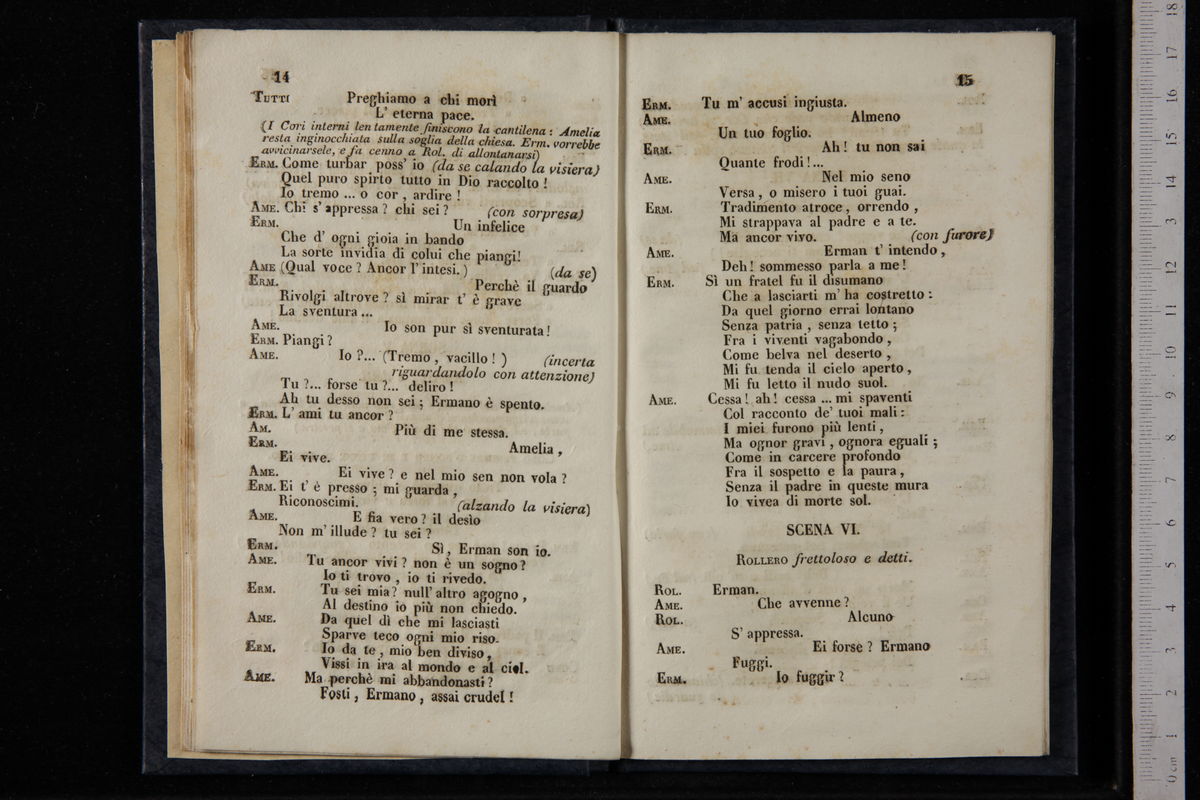 14
TUTTI Preghiamo a chi morì
L' eterna pace.
(I Cori interni lentamente finiscono la cantilena: Amelia
resta inginocchiata sulla soglia della chiesa. Erm. vorrebbe
avvicinarsele, e fa cenno a Rol. di allontanarsi)
ERM. Come turbar poss' io (da se calando la visiera)
Quel puro spirto tutto in Dio raccolto!
Io tremo ... o cor, ardire!
AME. Chi s' appressa? chi sei? (con sorpresa)
ERM. Un infelice
Che d' ogni gioia in bando
La sorte invidia di colui che piangi!
AME (Qual voce? Ancor l' intesi.) (da se)
ERM. Perchè il guardo
Rivolgi altrove? sì mirar t' è grave
La sventura ...
AME. Io son pur sì sventurata!
ERM. Piangi?
AME. Io?... (Tremo, vacillo!) (incerta
riguardandolo con attenzione)
Tu?... forse tu?... deliro!
Ah tu desso non sei; Ermano è spento.
ERM. L' ami tu ancor?
AM. Più di me stessa.
ERM. Amelia,
Ei vive.
AME. Ei vive? e nel mio sen non vola?
ERM. Ei t' è presso; mi guarda,
Riconoscimi. (alzando la visiera)
AME. E fia vero? il desìo
Non m' illude? tu sei?
ERM. Sì, Erman son io.
AME. Tu ancor vivi? non è un sogno?
Io ti trovo, io ti rivedo.
ERM. Tu sei mia? null' altro agogno,
Al destino io più non chiedo.
AME. Da quel dì che mi lasciasti
Sparve teco ogni mio riso.
ERM. Io da te, mio ben diviso,
Vissi in ira al mondo e al ciel.
AME. Ma perchè mi abbandonasti?
Fosti, Ermano, assai crudel!
15
ERM. Tu m' accusi ingiusta.
AME. Almeno
Un tuo foglio.
ERM. Ah! tu non sai
Quante frodi!...
AME. Nel mio seno
Versa, o misero i tuoi guai.
ERM. Tradimento atroce, orrendo,
Mi strappava al padre e a te.
Ma ancor vivo. (con furore)
AME. Erman t' intendo,
Deh! sommesso parla a me!
ERM. Sì un fratel fu il disumano
Che a lasciarti m' ha costretto:
Da quel giorno errai lontano
Senza patria, senza tetto;
Fra i viventi vagabondo,
Come belva nel deserto,
Mi fu tenda il cielo aperto,
Mi fu letto il nudo suol.
AME. Cessa! ah! cessa ... mi spaventi
Col racconto de' tuoi mali:
I miei furono più lenti,
Ma ognor gravi, ognora eguali;
Come in carcere profondo
Fra il sospetto e la paura,
Senza il padre in queste mura
Io vivea di morte sol.
SCENA VI.
ROLLERO frettoloso e detti.
ROL. Erman.
AME. Che avvenne?
ROL. Alcuno
S' appressa.
AME. Ei forse? Ermano
Fuggi.
ERM. Io fuggir?
0 cm 1 2 3 4 5 6 7 8 9 10 11 12 13 14 15 16 17 18